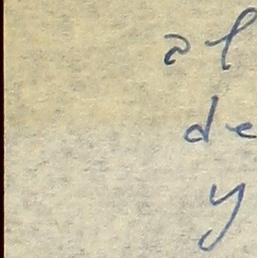 al
de
y